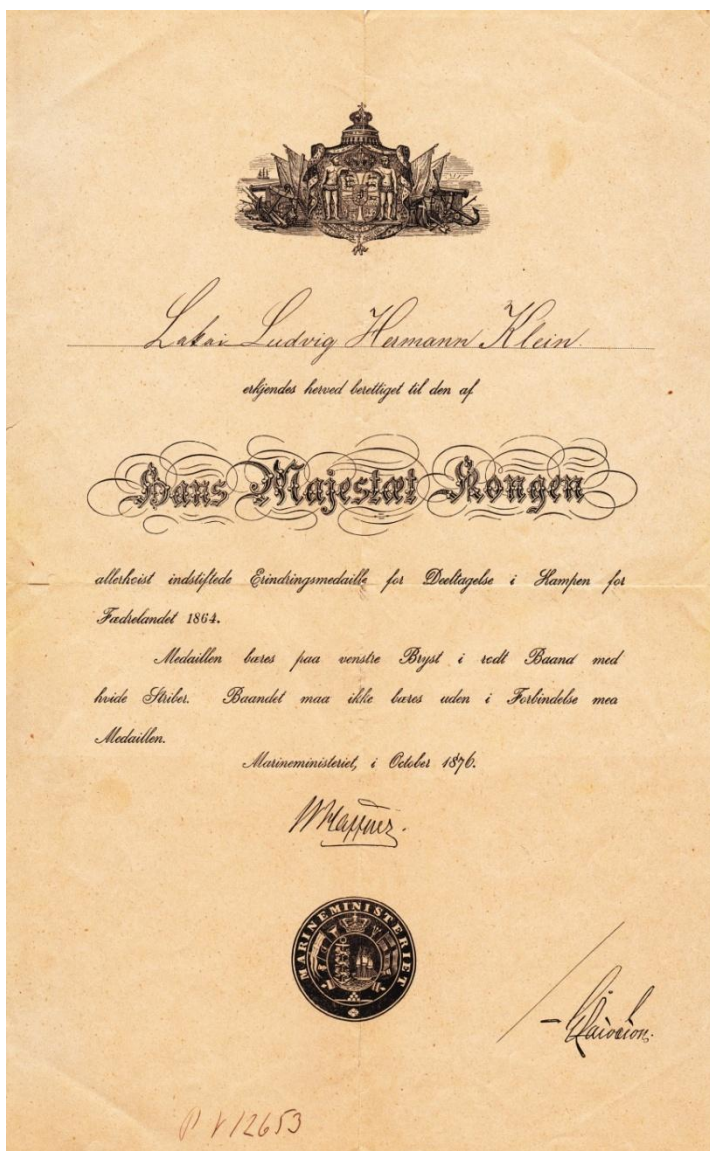 Lakai Ludvig Hermann Klein.
erkjendes herved berettiget til den af
Hans Majestæt Kongen
allerhøist indstiftede Erindringsmedaille for Deeltagelse i Kampen for
Fædrelandet 1864.
Medaillen bæres paa venstre Bryst i rødt Baand med
hvide Striber. Baandet maa ikke bæres uden i Forbindelse med
Medaillen.
Marineministeriet, i October 1876.
MARINEMINISTERIET
12653